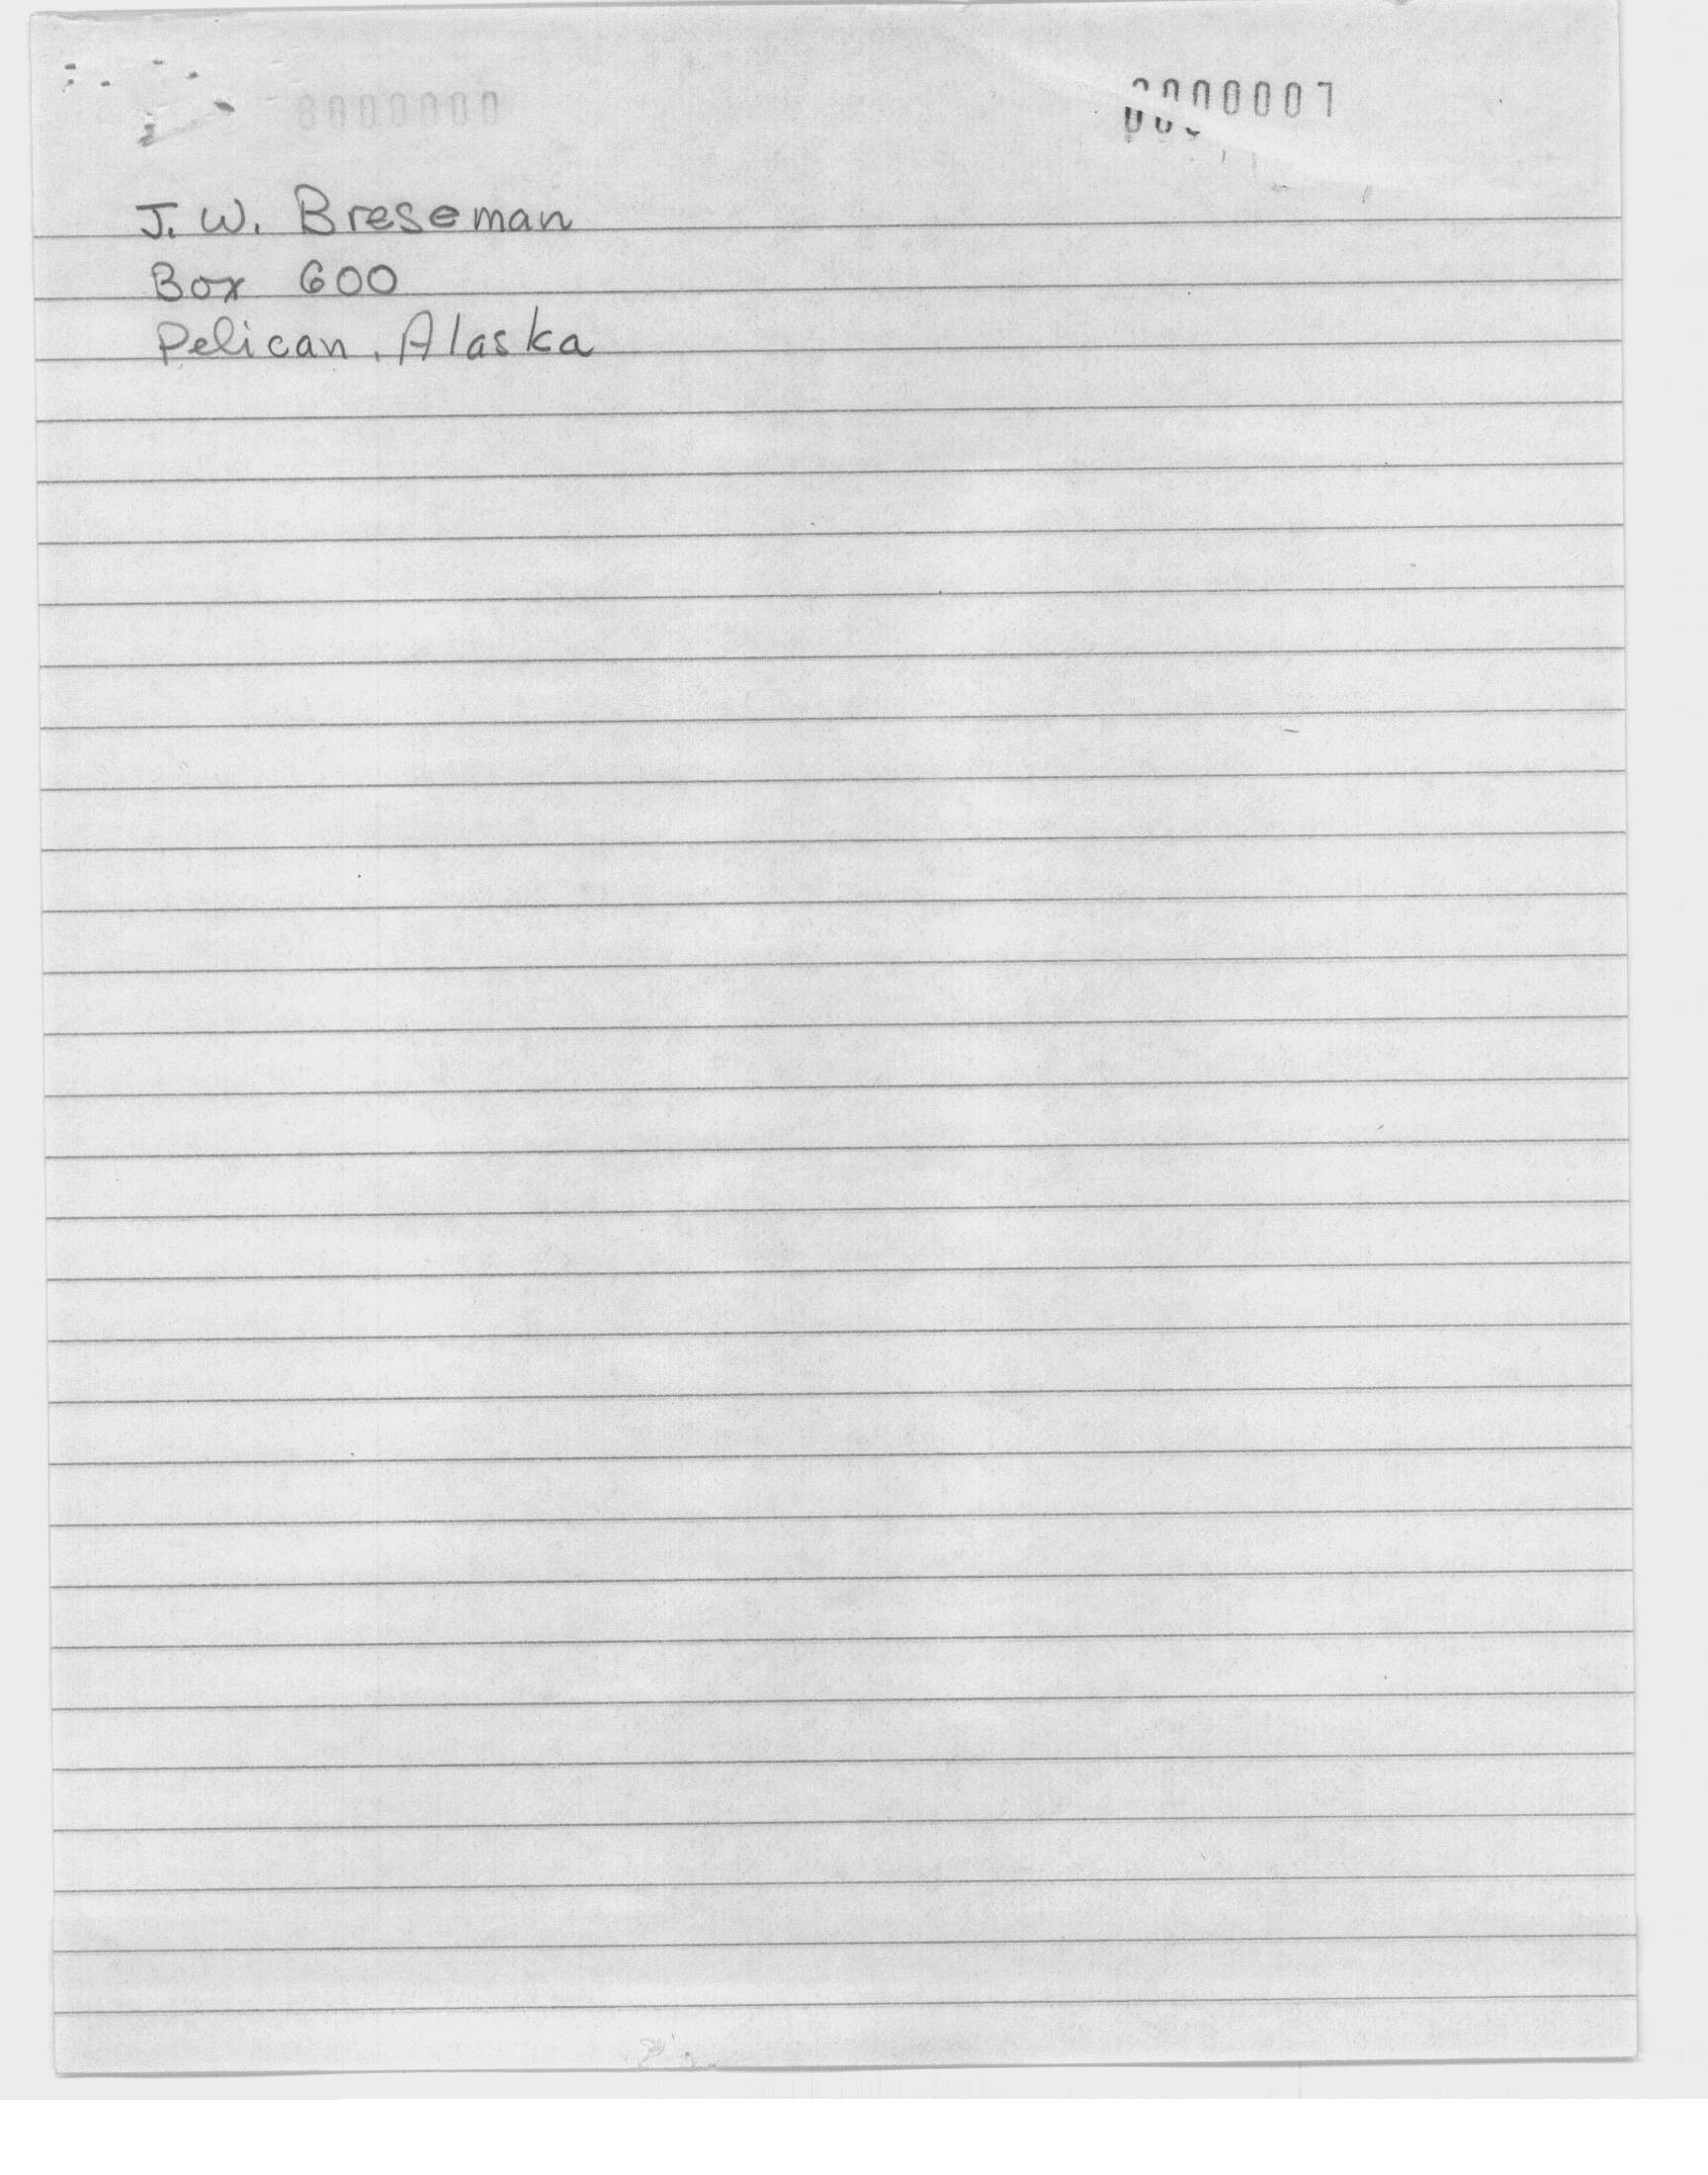 0000007
J. W. Breseman
Box 600
Pelican, Alaska